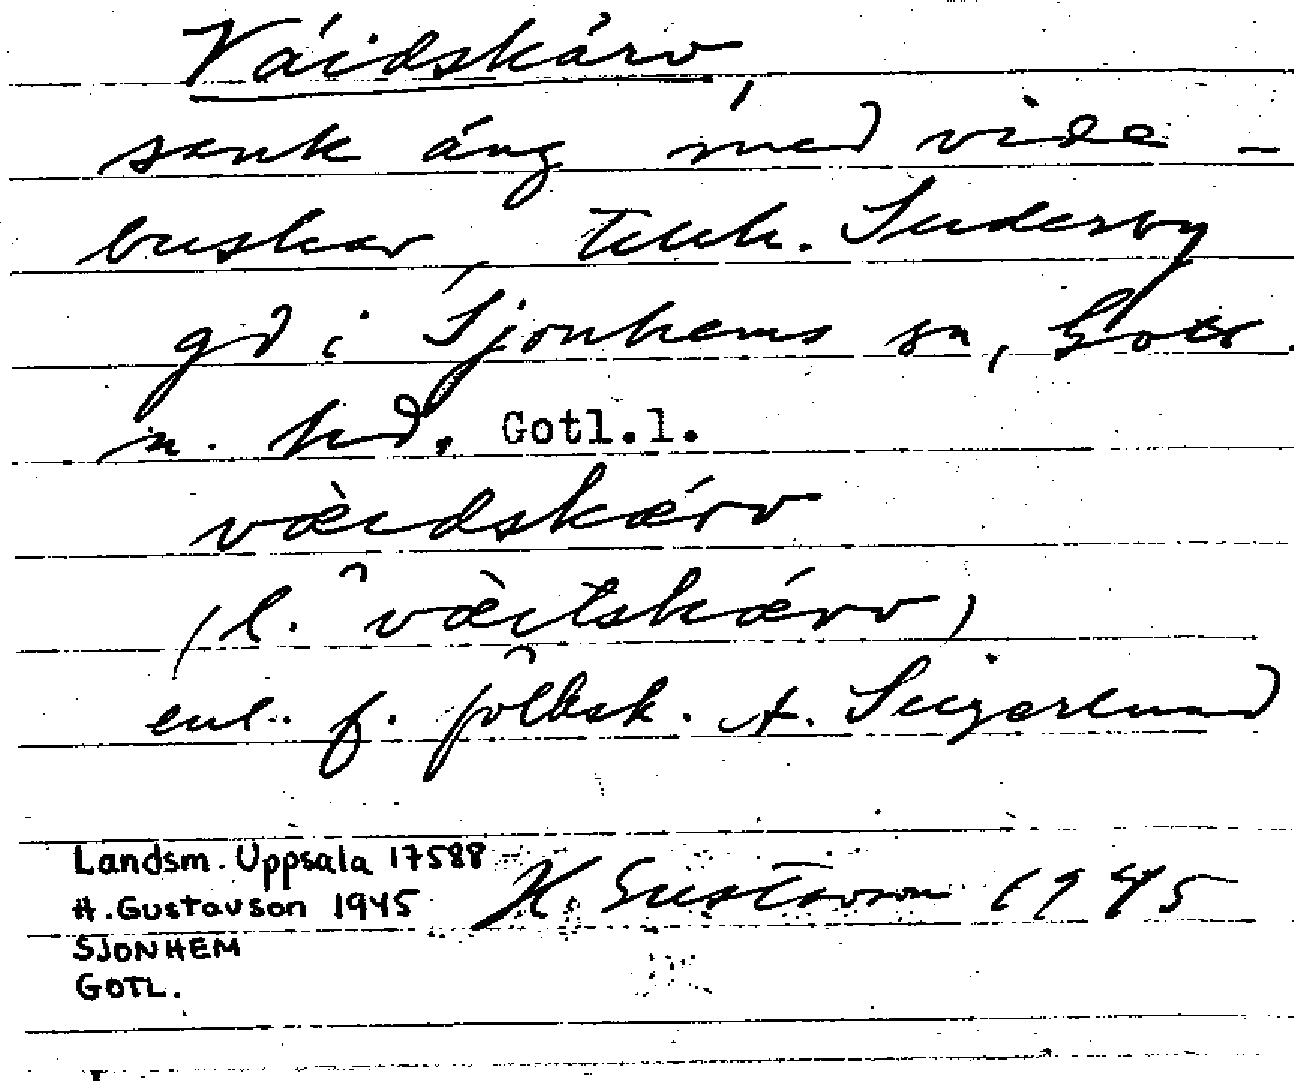 Väidskärv,
sank äng med vide-
buskar, tillh. Suderby
gd i Sjonhems sn, Gotl.
n. hd. Gotl.l.
väidskärv
(l. väitskärv)
enl. f. folksk. A. Sigerlund
Landsm. Uppsala 17588
H. Gustavson 1945
H. Gustavson 1945
SJONHEM
GOTL.